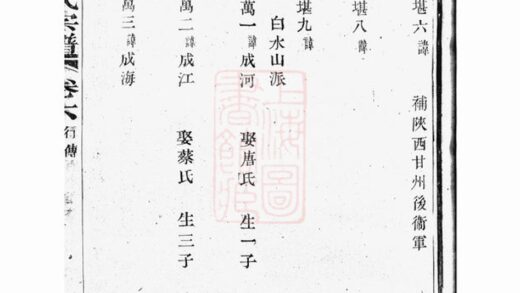 堪六 諱 補陝西甘州後衞軍
堪八 諱
堪九 諱
白水山派
萬一 諱成河 娶唐氏 生一子
萬二 諱成江 娶蔡氏 生三子
萬三 諱成海
氏宗譜 卷六 行傳
上海圖書館藏